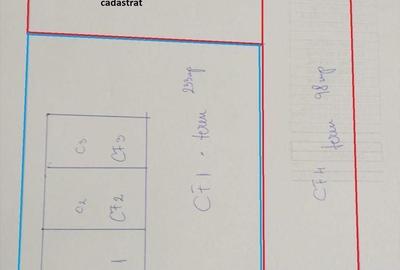 cadastrat
C3
CF3
C2
CF2
1
CF1 - teren 233 mp
CF4 teren 98 mp